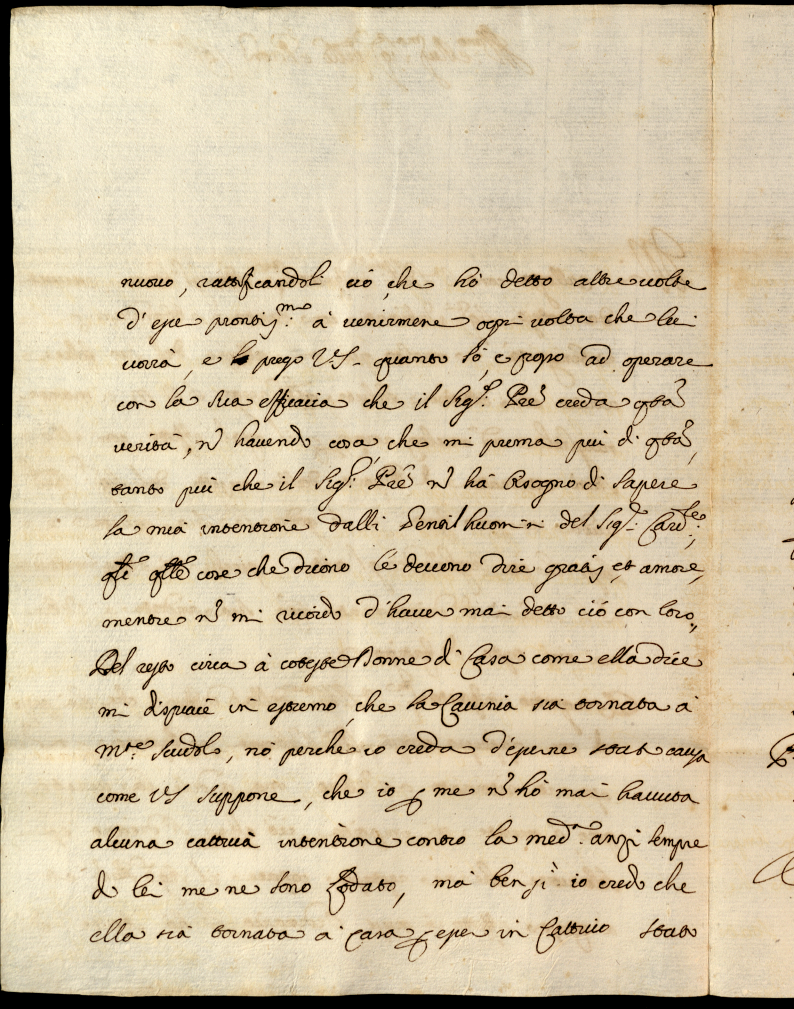 nuovo, rattificandoli ciò che hò detto altre volte
d'esse prontiss.mo à venirmene ogni volta che lei
vorrà, e prego VS. quanto sò, e posso ad operare
con la sua efficacia che il Sig.r Pre creda qsta
verità, nō havendo cosa, che mi prema più di qsta,
tanto più che il Sig.r Pre nō hà bisogno di sapere
la mia intentione dalli Gentilhuomini del Sig.r Card.le;
qste cose che dicono le devono dire gratis, et amore,
mentre nō mi ricordo d'haver mai detto ciò con loro,
Del resto circa à coteste Donne di Casa come ella dice
mi dispiace in estremo, che la Lavinia sia tornata à
m.te scudolo, nò perche io creda d'esserne stato causa
come VS suppone, che io p me nō hò mai havuta
alcuna cattiva intentione contro la med.a anzi sempre
di lei me ne sono lodato, mà ben sì io credo che
ella sia tornata à casa p esser in Cattivo stato